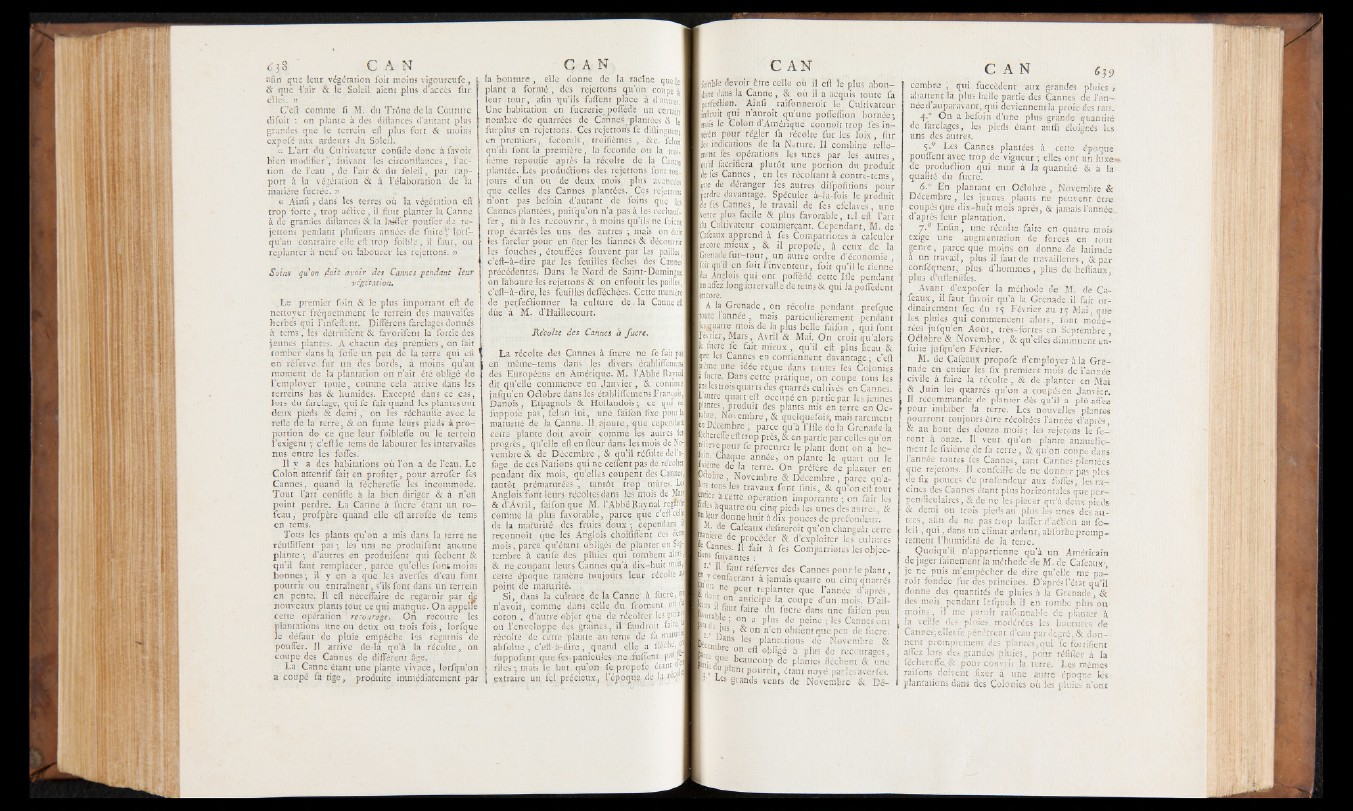 638 C A N
afin que leur végétation soit moins vigoureuse,
& que l'air & le Soleil aient plus d'accès sur
elles. »
C'est comme si M. du Trône de la Couture
disoit : on plante à des distances d'autant plus
grandes que le terrein est plus fort & moins
exposé aux ardeurs du Soleil.
« L'art du Cultivateur consiste donc à savoir
bien modifier, suivant les circonstances, l'ac-
tion de l'eau, de l'air & du soleil, par rap-
port à la végétation & à l'élaboration de la
matière sucrée. »
« Ainsi, dans les terres où la végétation est
trop forte, trop active, il faut planter la Canne
à de grandes distances & la laisser pousser de re-
jettons pendant plusieurs années de suite ; lors-
qu'au contraire elle est trop foible, il faut, ou
replanter à neuf ou labourer les rejettons. »
Soins qu'on doit avoir des Cannes pendant leur
végétation.
Le premier soin & le plus important est de
nettoyer fréquemment le terrein des mauvaises
herbes qui l'infestent. Différens sarclages donnés
à tems, les détruisent & favorisent la sortie des
jeunes plantes. A chacun des premiers, on fait
tomber dans la fosse un peu de la terre qui est
en réserve sur un des bords, à moins qu'au
moment de la plantation on n'ait été obligé de
l'employer toute, comme cela arrive dans les
terreins bas & humides. Excepté dans ce cas,
lors du sarclage, qui se fait quand les plantes ont
deux pieds & demi, on les réchausse avec le
reste de la terre, & on fume leurs pieds à pro-
portion de ce que leur foiblesse ou le terrein
l'exigent ; c'est le tems de labourer les intervalles
nus entre les fosses.
Il y a des habitations où l'on a de l'eau. Le
Colon attentif sait en profiter, pour arroser ses
Cannes, quand la sécheresse les incommode.
Tout l'art consiste à la bien diriger & à n'en
point perdre. La Canne à sucre étant un ro-
seau, prospère quand elle est arrosée de tems
en tems.
Tous les plants qu'on a mis dans la terre ne
réussissent pas ; les uns ne produisent aucune
plante ; d'autres en produisent qui sèchent &
qu'il faut remplacer, parce qu'elles sont moins
bonnes ; il y en a que les averses d'eau font
pourrir ou entraînent, s'ils sont dans un terrein
en pente. Il est nécessaire de regarnir par de
nouveaux plants tout ce qui manque. On appelle
cette opération recourage. On recoure les
plantations une ou deux ou trois fois, lorsque
le défaut de pluie empêche les regarnis de
pousser. Il arrive de-là qu'à la récolte, on
coupe des Cannes de différent âge.
La Canne étant une plante vivace, lorsqu'on
a coupé sa tige, produite immédiatement par
C A N
la bouture, elle donne de la racine que le
plant a formé, des rejettons qu'on coupe à
leur tour, afin qu'ils fassent place à d'autres.
Une habitation en sucrerie possède un certain
nombre de quarrées de Cannes plantées & le
surplus en rejettons. Ces rejettons se distinguent
en premiers, seconds, troisièmes, &c. selon
qu'ils sont la première, la seconde ou la troi-
sième repousse après la récolte de la Canne
plantée. Les productions des rejettons sont tou-
jours d'un ou de deux mois plus avancées
que celles des Cannes plantées. Ces rejettons
n'ont pas besoin d'autant de soins que les
Cannes plantées, puisqu'on n'a pas à les rechauf-
fer, ni à les recouvrir, à moins qu'ils ne soient
trop écartés les uns des autres ; mais on doit
les sarcler pour en ôter les liannes & découvrir
les souches, étouffées souvent par les pailles,
c'est-à-dire par les feuilles sèches des Cannes
précédentes. Dans le Nord de Saint-Domingue
on laboure les rejettons & on enfouit les pailles,
c'est-à-dire, les feuilles desséchées. Cette manière
de perfectionner la culture de la Canne est
due à M. d'Haillecourt.
Récolte des Cannes à sucre.
La récolte des Cannes à sucre ne se fait pas
en même-tems dans les divers établissemens
des Européens en Amérique. M. l'Abbé Raynal
dit qu'elle commence en Janvier, & continue
jusqu'en Octobre dans les établissemens François,
Danois, Espagnols & Hollandois ; ce qui ne
suppose pas, selon lui, une saison fixe pour la
maturité de la Canne. Il ajoute, que cependant
cette plante doit avoir comme les autres ses
progrès, qu'elle est en fleur dans les mois de No-
vembre & de Décembre, & qu'il résulte de l'u-
sage de ces Nations qui ne cessent pas de récolter
pendant dix mois, qu'elles coupent des Cannes,
tantôt prématurées, tantôt trop mûres. Les
Anglois font leurs récoltes dans les mois de Mars
& d'Avril, saison que M. l'Abbé Raynal regarde
comme la plus favorable, parce que c'est celle
de la maturité des fruits doux ; cependant il
reconnoît que les Anglois choisissent ces deux
mois, parce qu'étant obligés de planter en Sep-
tembre à cause des pluies qui tombent alors,
& ne coupant leurs Cannes qu'à dix-huit mois,
cette époque ramène toujours leur récolte au
point de maturité.
Si, dans la culture de la Canne à sucre, on
n'avoit, comme dans celle du froment ou du
coton, d'autre objet que de récolter les grains
ou l'enveloppe des graines, il faudroit faire la
récolte de cette plante au tems de sa maturité
absolue, c'est-à-dire, quand elle a fleuri,
supposant que ses panicules ne fussent pas sté-
riles ; mais le but qu'on se propose étant d'en
extraire un sel précieux, l'époque de la récolte
C A N
semble devoir être celle où il est le plus abon-
dant dans la Canne, & où il a acquis toute sa
perfection. Ainsi raisonneroit le Cultivateur
instruit qui n'auroit qu'une possession bornée ;
mais le Colon d'Amérique connoît trop ses in-
térêts pour régler sa récolte sur les loix, sur
les indications de la Nature. Il combine telle-
ment ses opérations les unes par les autres,
qu'il sacrifiera plutôt une portion du produit
de ses Cannes, en les récoltant à contre-tems,
que de déranger ses autres dispositions pour
perdre davantage. Spéculer à-la-fois le produit
de ses Cannes, le travail de ses esclaves, une
vente plus facile & plus favorable, tel est l'art
du Cultivateur commerçant. Cependant, M. de
Caseaux apprend à ses Compatriotes à calculer
encore mieux, & il propose, à ceux de la
Grenade sur-tout, un autre ordre d'économie,
soit qu'il en soit l'inventeur, soit qu'il le tienne
des Anglois qui ont possédé cette Isle pendant
un assez long intervalle de tems & qui la possèdent
encore.
A la Grenade, on récolte pendant presque
toute l'année, mais particulièrement pendant
les quatre mois de la plus belle saison, qui sont
Février, Mars, Avril & Mai. On croit qu'alors
le sucre se fait mieux, qu'il est plus beau &
que les Cannes en contiennent davantage ; c'est
même une idée reçue dans toutes les Colonies
à sucre. Dans cette pratique, on coupe tous les
ans les trois quarts des quarrés cultivés en Cannes.
L'autre quart est occupé en partie par les jeunes
plantes, produit des plants mis en terre en Oc-
tobre, Novembre, & quelquefois, mais rarement
en Décembre, parce qu'à l'Isle de la Grenade la
sécheresse est trop près, & en partie par celles qu'on
réserve pour se procurer le plant dont on a be-
soin. Chaque année, on plante le quart ou le
sixième de la terre. On préfère de planter en
Octobre, Novembre & Décembre, parce qu'a-
lors tous les travaux sont finis, & qu'on est tout
entier à cette opération importante ; on fait les
fosses à quatre ou cinq pieds les unes des autres, &
on leur donne huit à dix pouces de profondeur.
M. de Caseaux desireroit qu'on changeât cette
manière de procéder & d'exploiter les cultures
de Cannes. Il fait à ses Compatriotes les objec-
tions suivantes :
1.° Il faut réserver des Cannes pour le plant,
en y consacrant à jamais quatre ou cinq quarrés
qu'on ne peut replanter que l'année d'après,
& dont on anticipe la coupe d'un mois. D'ail-
leurs il faut faire du sucre dans une saison peu
favorable ; on a plus de peine ; les Cannes ont
peu du jus, & on n'en obtient que peu de sucre.
2.° Dans les plantations de Novembre &
Décembre on est obligé à plus de recourages,
parce que beaucoup de plantes sèchent & une
partie du plant pourrit, étant noyé par les averses.
3.° Les grands vents de Novembre & Dé-
C A N 639
cembre, qui succèdent aux grandes pluies,
abattent la plus belle partie des Cannes de l'an-
née d'auparavant, qui deviennent la proie des rats.
4.° On a besoin d'une plus grande quantité
de sarclages, les pieds étant aussi éloignés les
uns des autres.
5.° Les Cannes plantées à cette époque
poussent avec trop de vigueur ; elles ont un luxe
de production qui nuit à la quantité & à la
qualité du sucre.
6.° En plantant en Octobre, Novembre &
Décembre, les jeunes plants ne peuvent être
coupés que dix-huit mois après, & jamais l'année
d'après leur plantation.
7.° Enfin, une récolte faite en quatre mois
exige une augmentation de forces en tout
genre, parce que moins on donne de latitude
à un travail, plus il faut de travailleurs, & par
conséquent, plus d'hommes, plus de bestiaux,
plus d'ustensiles.
Avant d'exposer la méthode de M. de Ca-
seaux, il faut savoir qu'à la Grenade il fait or-
dinairement sec du 15 Février au 15 Mai, que
les pluies qui commencent alors, sont modé-
rées jusqu'en Août, très-fortes en Septembre,
Octobre & Novembre, & qu'elles diminuent en-
suite jusqu'en Février.
M. de Caseaux propose d'employer à la Gre-
nade en entier les six premiers mois de l'année
civile à faire la récolte, & de planter en Mai
& Juin les quarrés qu'on a coupés en Janvier.
Il recommande de planter dès qu'il a plu assez
pour imbiber la terre. Les nouvelles plantes
pourront toujours être récoltées l'année d'après,
& au bout des douze mois ; les rejetons le se-
ront à onze. Il veut qu'on plante annuelle-
ment le sixième de sa terre, & qu'on coupe dans
l'année toutes ses Cannes, tant Cannes plantées
que rejetons. Il conseille de ne donner pas plus
de six pouces de profondeur aux fosses, les ra-
cines des Cannes étant plus horizontales que per-
pendiculaires, & de ne les placer qu'à deux pieds
& demi ou trois pieds au plus les unes des au-
tres, afin de ne pas trop laisser d'action au so-
leil, qui, dans un climat ardent, absorbe promp-
tement l'humidité de la terre.
Quoiqu'il n'appartienne qu'à un Américain
de juger sainement la méthode de M. de Caseaux,
je ne puis m'empêcher de dire qu'elle me pa-
roît fondée sur des principes. D'après l'état qu'il
donne des quantités de pluies à la Grenade, &
des mois pendant lesquels il en tombe plus ou
moins, il me paroît raisonnable de planter à
la veille des pluies modérées les boutures de
Cannes ; elles se pénètrent d'eau par degré, & don-
nent promptement des plantes, qui se fortifient
assez lors des grandes pluies, pour résister à la
sécheresse, & pour couvrir la terre. Les mêmes
raisons doivent fixer à une autre époque les
plantations dans des Colonies où les pluies n'ont